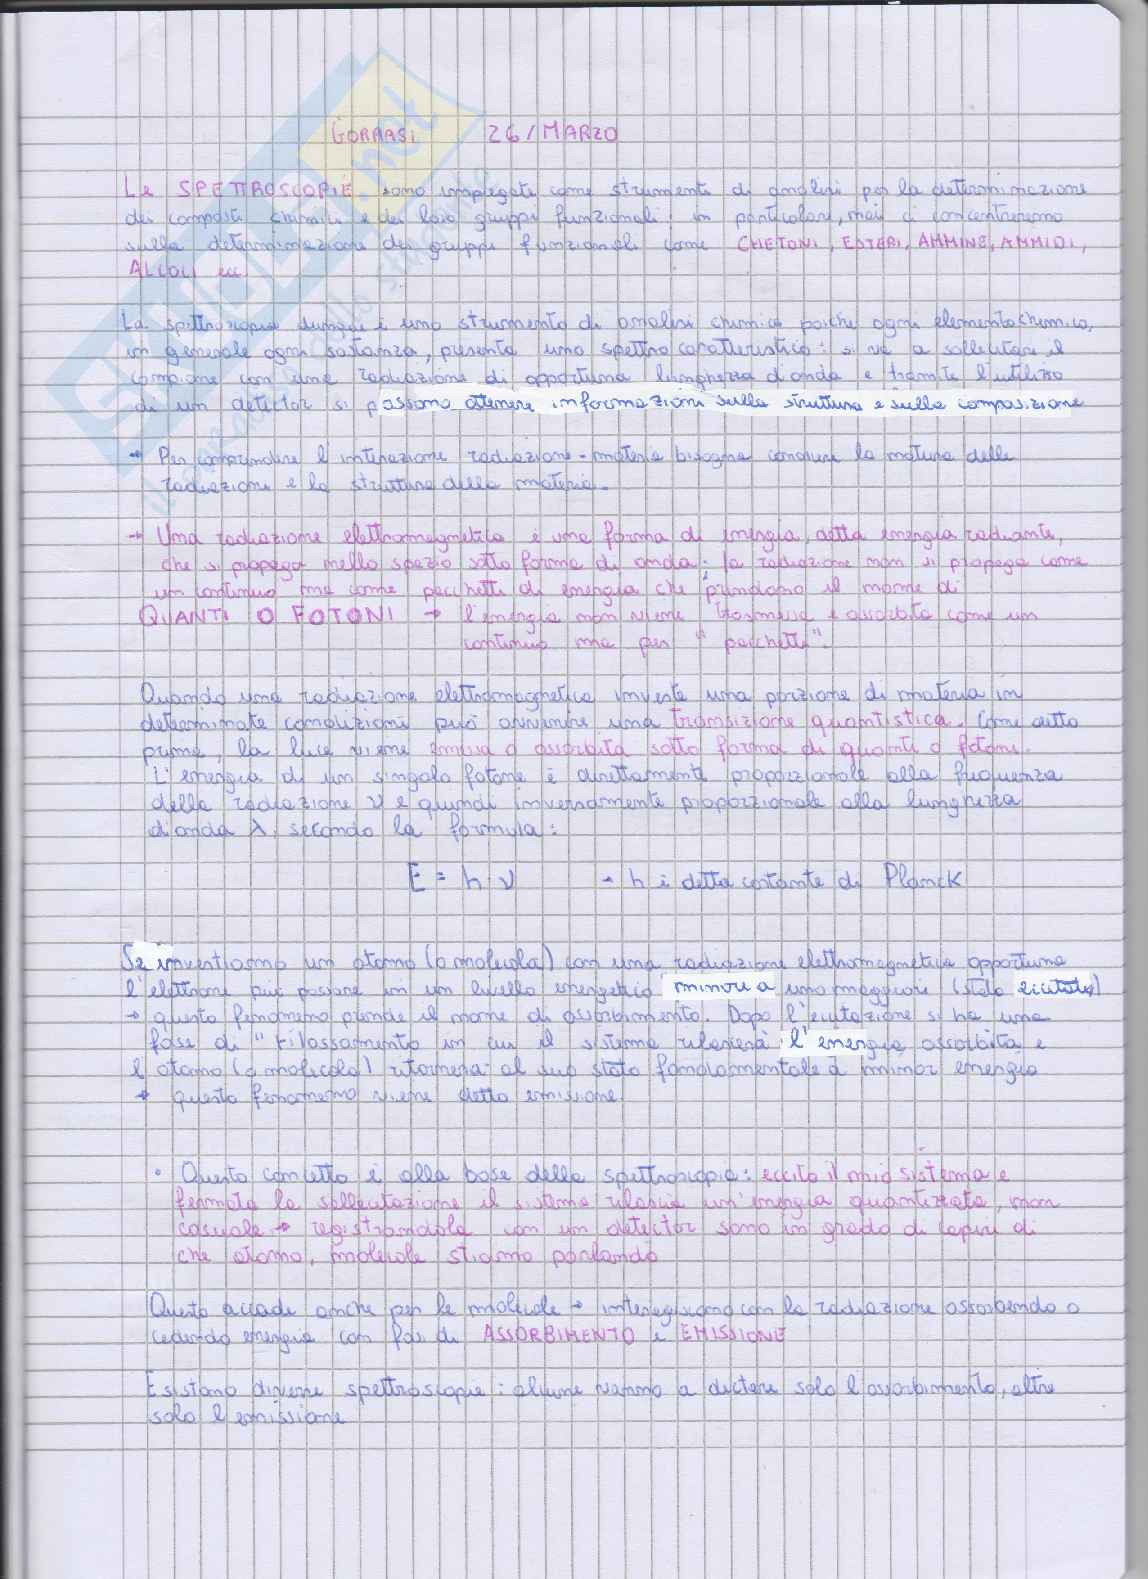 GORRASI 26/MARZO
Le SPETTROSCOPIE sono impiegate come strumenti di analisi per la determinazione
dei composti chimici e dei loro gruppi funzionali; in particolare, noi ci concentreremo
sulla determinazione dei gruppi funzionali come CHETONI, ESTERI, AMMINE, AMMIDI,
ALCOLI ecc
La spettroscopia dunque è uno strumento di analisi chimica poiche ogni elemento chimico,
in generale ogni sostanza, presenta uno spettro caratteristico: si va a sollecitare il
campione con una radiazione di opportuna lunghezza d'onda e tramite l'utilizzo
di un detector si possono ottenere informazioni sulla struttura e sulla composizione
→ Per comprendere l'interazione radiazione-materia bisogna conoscere la natura delle
radiazioni e la struttura della materia.
→ Una radiazione elettromagnetica è una forma di energia, detta energia radiante,
che si propaga nello spazio sotto forma di onda; la radiazione non si propaga come
un continuo ma come pacchetti di energia che prendono il nome di
QUANTI O FOTONI → l'energia non viene trasmessa e assorbita come un
continuo ma per "pacchetti".
Quando una radiazione elettromagnetica investe una porzione di materia in
determinate condizioni può avvenire una transizione quantistica. Come detto
prima, la luce viene emessa o assorbita sotto forma di quanti o fotoni.
L'energia di un singolo fotone è direttamente proporzionale alla frequenza
della radiazione ν e quindi inversamente proporzionale alla lunghezza
d'onda λ, secondo la formula:
E = h ν → h è detta costante di Planck
Se investiamo un atomo (o molecola) con una radiazione elettromagnetica opportuna
l'elettrone può passare in un livello energetico minore a uno maggiore (stato eccitato)
→ questo fenomeno prende il nome di assorbimento. Dopo l'eccitazione si ha una
fase di "rilassamento in cui il sistema rilascerà l'energia assorbita e
l'atomo (o molecola) ritornerà al suo stato fondamentale a minor energia
→ questo fenomeno viene detto emissione.
• Questo concetto è alla base della spettroscopia: eccito il mio sistema e
fermata la sollecitazione il sistema rilascia un'energia quantizzata, non
casuale → registrandola con un detector sono in grado di capire di
che atomo, molecole stiamo parlando
Questo accade anche per le molecole → interagiscono con la radiazione assorbendo o
cedendo energia con fasi di ASSORBIMENTO e EMISSIONE
Esistono diverse spettroscopie: alcune vanno a detectare solo l'assorbimento, altre
solo l'emissione
SKUOLA.net